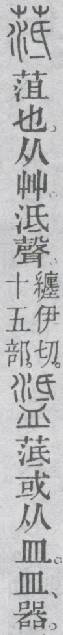 䓜菹也。从艸泜聲。纏伊切。十五部。䓜或从皿。皿、器。